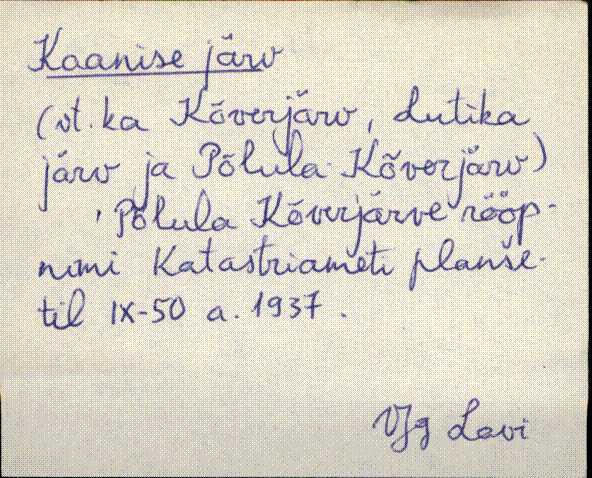 Kaanise järv
(vt. ka Kõverjärv, Lutika
järv ja Põlula Kõverjärv)
Põlula Kõverjärve rööp-
nimi Katastriameti planše-
til IX-50 a. 1937.
VJg Lavi